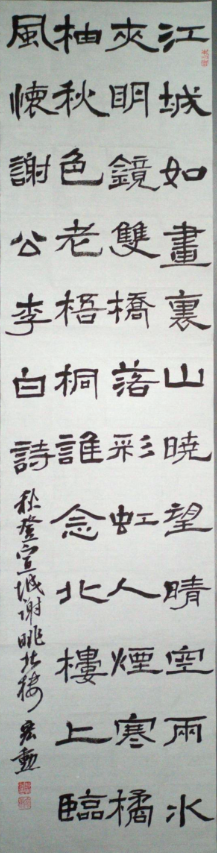 江城如畫裏山曉望晴空兩水
夾明鏡雙橋落彩虹人煙寒橘
柚秋色老梧桐誰念北樓上臨
風懷謝公李白詩
秋登宣城謝脁北樓 宏勳